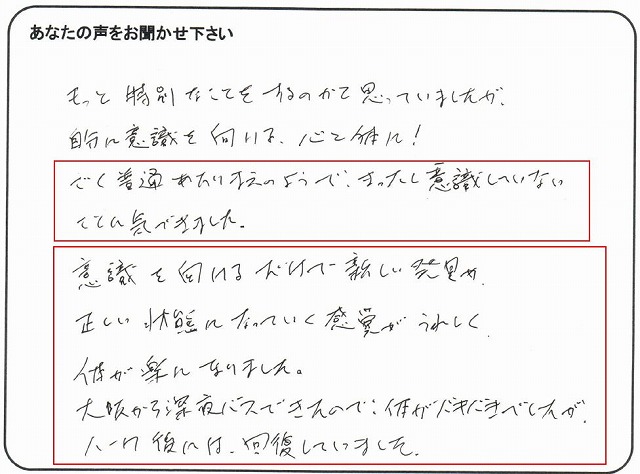 あなたの声をお聞かせ下さい
もっと特別なことをするのかと思っていましたが、
自分に意識を向ける、心と体に！
ごく普通あたりまえのようで、まったく意識していない
ことに気づきました。
意識を向けるだけで新しい発見や、
正しい状態になっていく感覚がうれしく
体が楽になりました。
大阪から深夜バスできたので、体がバキバキでしたが、
ワーク後には、回復していました。